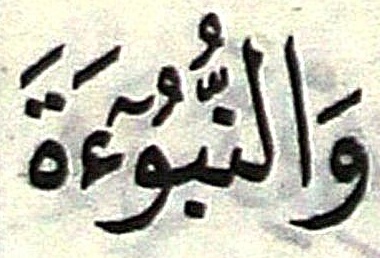 وَالنُّبُوٓءَةَ